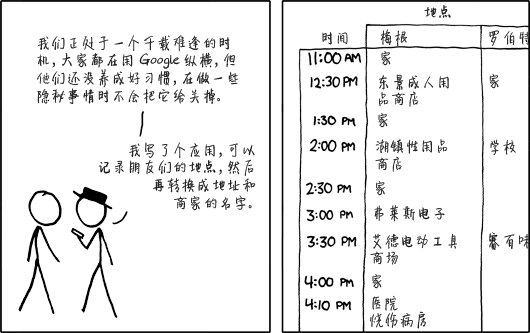 我们正处于一个千载难逢的时
机，大家都在用Google纵横，但
他们还没养成好习惯，在做一些
隐秘事情时不会把它给关掉。
我写了个应用，可以
记录朋友们的地点，然后
再转换成地址和
商家的名字。
地点
时间 梅根 罗伯特
11:00 AM 家
12:30 PM 东景成人用 家
品商店
1:30 PM 家
2:00 PM 湖镇性用品 学校
商店
2:30 PM 家
3:00 PM 弗莱斯电子
3:30 PM 艾德电动工具 赛百味
商场
4:00 PM 家
4:10 PM 医院
烧伤病房